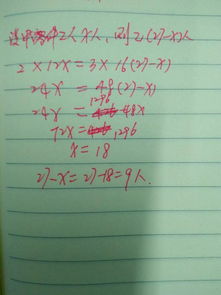 设甲种零件工人x人,则乙(27-x)人
2×12x=3×16(27-x)
24x=48(27-x)
24x=1296-48x
72x=1296
x=18
27-x=27-18=9人.